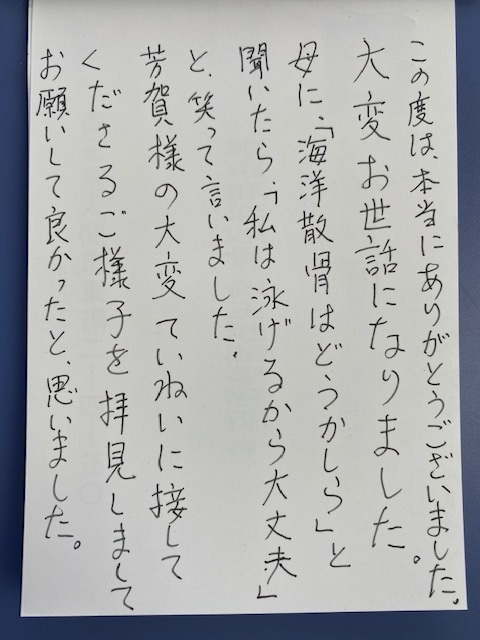 この度は、本当にありがとうございました。
大変お世話になりました。
母に、「海洋散骨はどうかしら」と
聞いたら、「私は、泳げるから大丈夫」
と、笑って言いました。
芳賀様の大変ていねいに接して
くださるご様子を拝見しまして
お願いして良かったと、思いました。